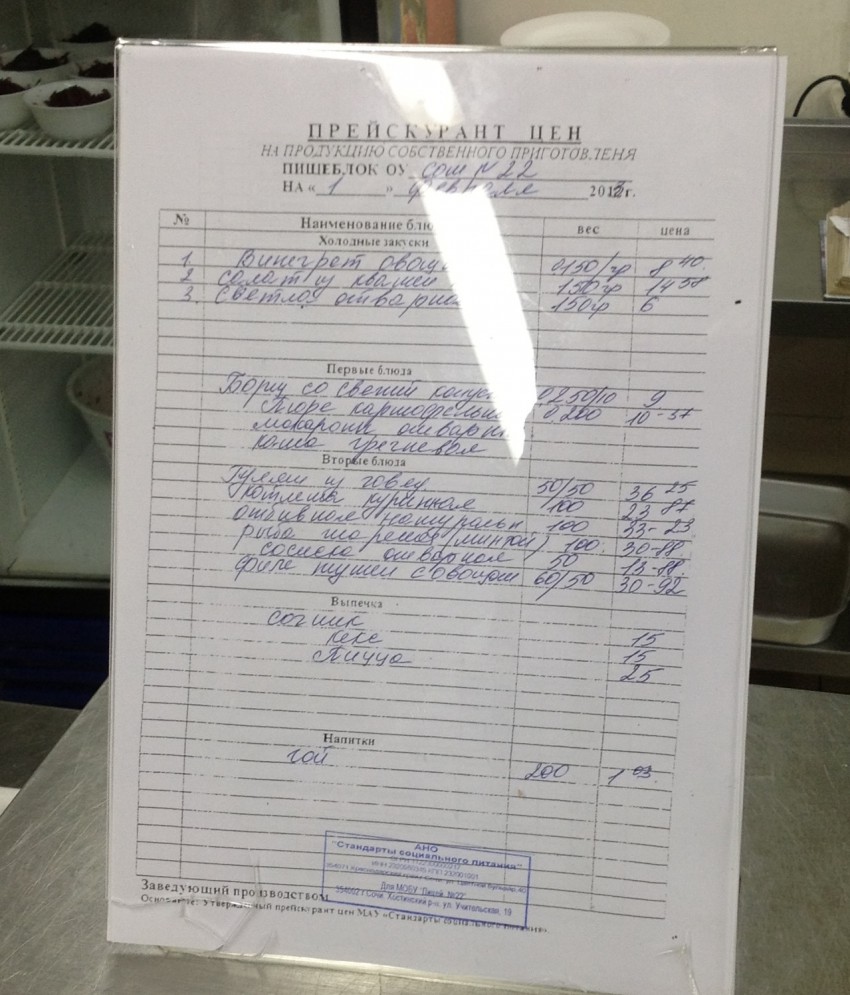 ПРЕЙСКУРАНТ ЦЕН
НА ПРОДУКЦИЮ СОБСТВЕННОГО ПРИГОТОВЛЕНЯ
ПИШЕБЛОК ОУ сош № 22
НА « 1 » февраля 2013г.
№ Наименование блю вес цена
Холодные закуски
1. Винегрет овощ 0150/гр 8 40.
2. салат из квашен 150гр 14 58
3. Светла отварная 150гр 6
Первые блюда
Борщ со свежий капус 0250/10 9
Пюре картофельн 0.200 10-37
макароны отварн
каша гречневая
Вторые блюда
Гуляш из говяд 50/50 36 25
котлета куринная 100 23 87
отбивная натуральн 100 33-23
рыба жареная (минтай) 100 30-88
сосиска отварная 50 13-88.
филе тушен с овощами 60/50 30-92
Выпечка
сочник 15
кекс 15
Пицца 25
Напитки
чай 200 1 03.
АНО
"Стандарты социального питания"
Для МОБУ "Лицей №22"
354002 г.Сочи, Хостинский р-н, ул. Учительская, 19
Заведующий производством
Основание: Утвержденный прейскурант цен МАУ «Стандарты социального питания».